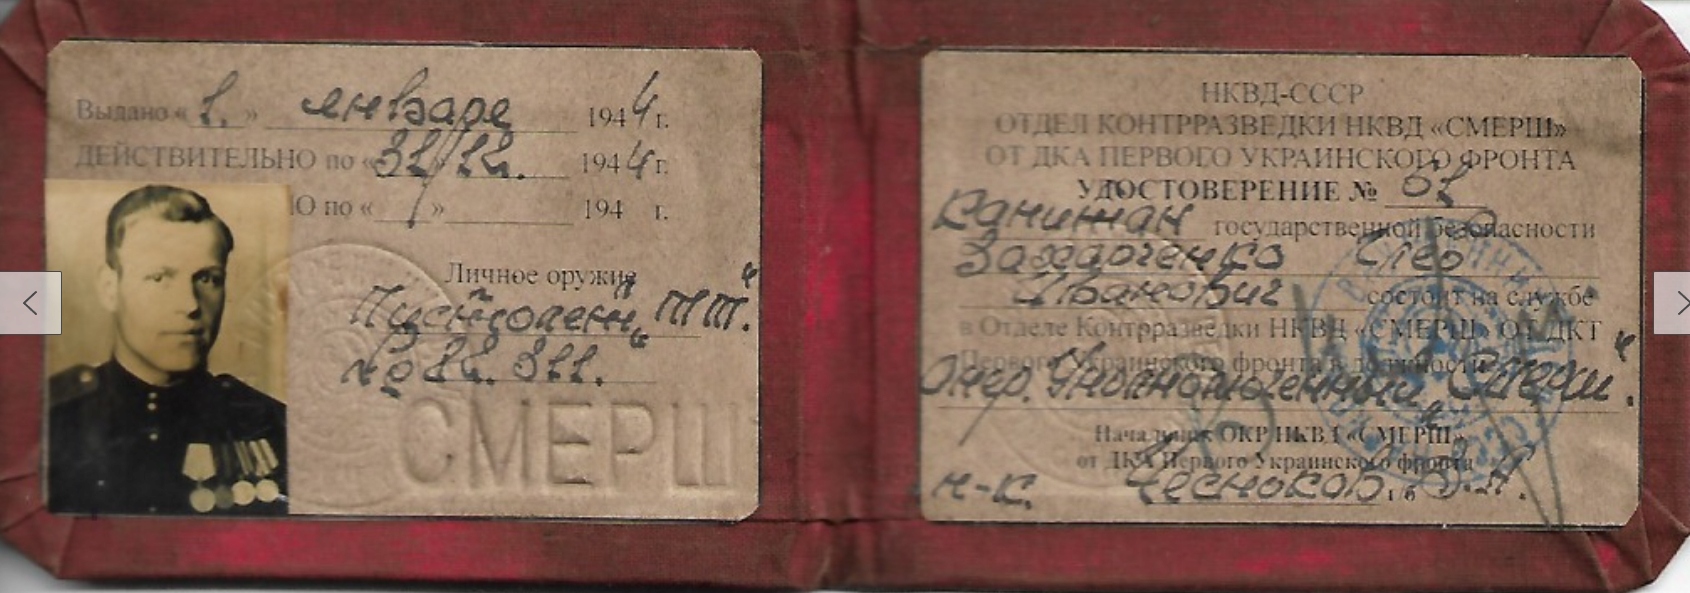 Выдано « 1. » январе 1944 г.
ДЕЙСТВИТЕЛЬНО по « 31/12. 1944 г.
О по « » 194 г.
Личное оружие
Пистолет „ТТ".
СМЕРШ
НКВД-СССР
ОТДЕЛ КОНТРРАЗВЕДКИ НКВД «СМЕРШ»
ОТ ДКА ПЕРВОГО УКРАИНСКОГО ФРОНТА
УДОСТОВЕРЕНИЕ № 51
Капитан государственной безопасности
Захарченко
Иванович состоит на службе
в Отделе Контрразведки НКВД «СМЕРШ» ОТ ДКТ
Первого Украинского фронта в должности
Опер. Уполномоченный „Смерш".
Начальник ОКР НКВД «СМЕРШ»
от ДКА Первого Украинского фронта
п-к. Чесноков